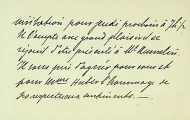 invitation pour jeudi prochain à 7h½
Il compte avec grand plaisir et se
réjouit d'être présenté à Mr
Il vous prie d'agréer pour vous et
pour Mme Hubert l'hommage de
ses respectueux sentiments.—